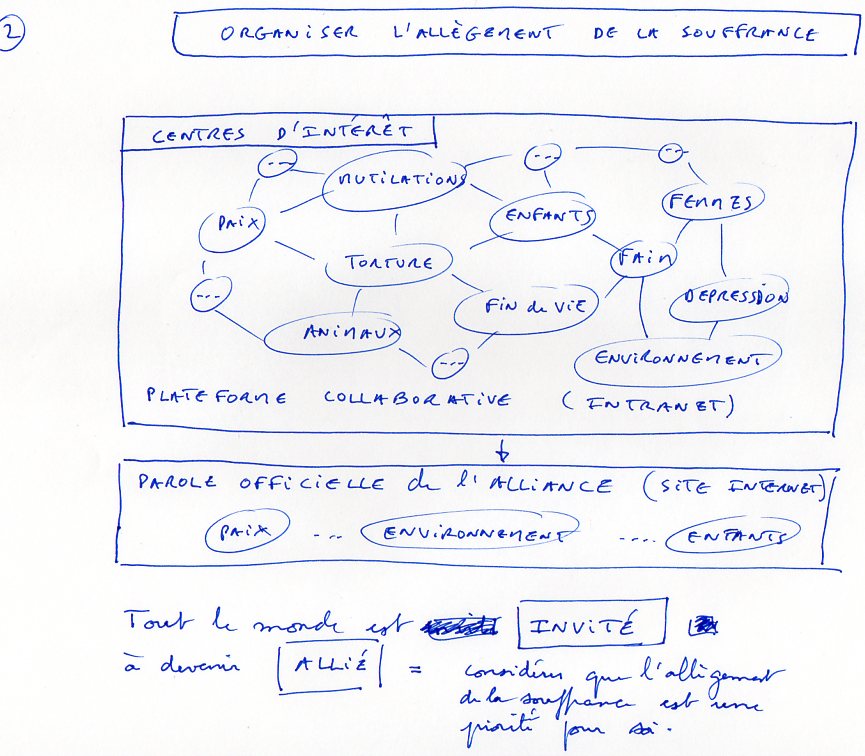 2
ORGANISER L'ALLÈGEMENT DE LA SOUFFRANCE
CENTRES D'INTÉRÊT
... MUTILATIONS ... ...
PAIX ENFANTS FEMMES
TORTURE FAIM
... FIN de VIE DEPRESSION
ANIMAUX ... ENVIRONNEMENT
PLATEFORME COLLABORATIVE (INTRANET)
PAROLE OFFICIELLE de l'ALLIANCE (SITE INTERNET)
PAIX ... ENVIRONNEMENT .... ENFANTS
Tout le monde est INVITÉ
à devenir ALLIÉ = considérer que l'allègement
de la souffrance est une
priorité pour soi.